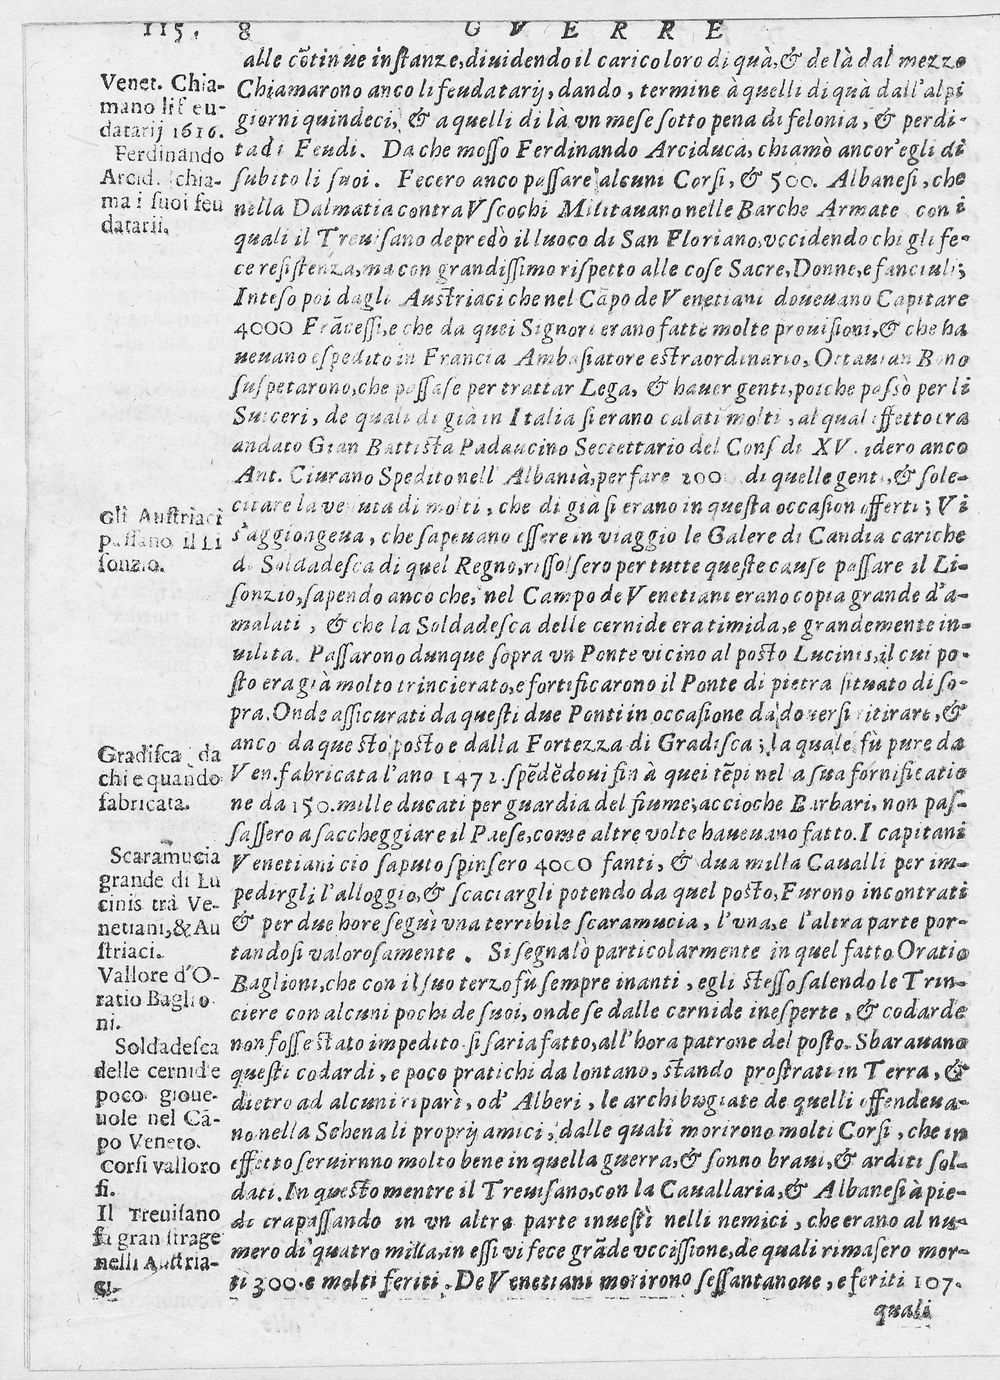 115. 8 GVERRE
alle cōtinue instanze, diuidendo il carico loro di quà, & de là dal mezzo
Venet. Chia-
mano li feu-
datarij 1616.
Chiamarono anco li feudatarij, dando, termine à quelli di quà dall'alpi
giorni quindeci, & a quelli di là vn mese sotto pena di felonia, & perdi-
ta di Feudi. Da che mosso Ferdinando Arciduca, chiamò ancor'egli di
Ferdinando
Arcid. chia-
ma i suoi feu
datarii.
subito li suoi. Fecero anco passare alcuni Corsi, & 500. Albanesi, che
nella Dalmatia contra Vscochi Militauano nelle Barche Armate con i
quali il Treuisano depredò il luoco di San Floriano, vccidendo chi gli fe-
ce resistenza, ma con grandissimo rispetto alle cose Sacre, Donne, e fanciuli;
Inteso poi dagli Austriaci che nel Cāpo de Venetiani doueuano Capitare
4000 Frācessi, e che da quei Signori erano fatte molte prouisioni, & che ha
ueuano espedito in Francia Ambasiatore estraordinario, Ottauian Bono
suspetarono, che passase per trattar Lega, & hauer genti, poiche passò per li
Suiceri, de quali di già in Italia si erano calati molti, al qual effetto era
andato Gian Battista Padauino Secrettario del Cons di XV. idero anco
Ant. Ciurano Spedito nell' Albanià, per fare 200 di quelle genti, & sole-
citare la venuta di molti, che di gia si erano in questa occasion offerti; Vi
Gli Austriaci
passano il Li
sonzio.
s'aggiongeua, che sapeuano essere in viaggio le Galere di Candia cariche
di Soldadesca di quel Regno, rissolsero per tutte queste cause passare il Li-
sonzio, sapendo anco che, nel Campo de Venetiani erano copia grande d'a-
malati, & che la Soldadesca delle cernide era timida, e grandemente in-
uilita. Passarono dunque sopra vn Ponte vicino al posto Lucinis, il cui po-
sto era già molto trincierato, e fortificarono il Ponte di pietra situato di so-
pra. Onde assicurati da questi due Ponti in occasione da douersi ritirare, &
anco da questo posto e dalla Fortezza di Gradisca; la quale fù pure da
Gradisca da
chi e quando
fabricata.
Ven. fabricata l'ano 1472. spēdēdoui fin à quei tēpi nel a sua fornificatio
ne da 150. mille ducati per guardia del fiume; accioche Barbari, non pas-
sassero a saccheggiare il Paese, come altre volte haueuano fatto. I capitani
Scaramucia
grande di Lu
cinis trà Ve-
netiani, & Au
striaci.
Venetiani cio saputo spinsero 4000 fanti, & dua milla Caualli per im-
pedirgli l'alloggio, & scaciargli potendo da quel posto, Furono incontrati
& per due hore seguì vna terribile scaramucia, l'vna, e l'altra parte por-
tandosi valorosamente. Si segnalò particolarmente in quel fatto Oratio
Vallore d'O-
ratio Baglio
ni.
Baglioni, che con il suo terzo fù sempre inanti, egli stesso salendo le Trin-
ciere con alcuni pochi de suoi, onde se dalle cernide inesperte, & codarde
non fosse stato impedito si saria fatto, all'hora patrone del posto. Sbarauano
Soldadesca
delle cernide
poco gioue-
uole nel Cā-
po Veneto.
questi codardi, e poco pratichi da lontano, stando prostrati in Terra, &
dietro ad alcuni ripari, od' Alberi, le archibugiate de quelli offendeua-
no nella Schena li proprij amici, dalle quali morirono molti Corsi, che in
Corsi valloro
si.
effetto seruirnno molto bene in quella guerra, & sonno braui, & arditi sol-
dati. In questo mentre il Treuisano, con la Cauallaria, & Albanesi à pie-
Il Treuisano
fà gran strage
nelli Austria-
ci.
di trapassando in vn altra parte inuestì nelli nemici, che erano al nu-
mero di quatro milla, in essi vi fece grāde vccissione, de quali rimasero mor-
ti 300. e molti feriti. De Venetiani morirono sessantanoue, e feriti 107.
quali